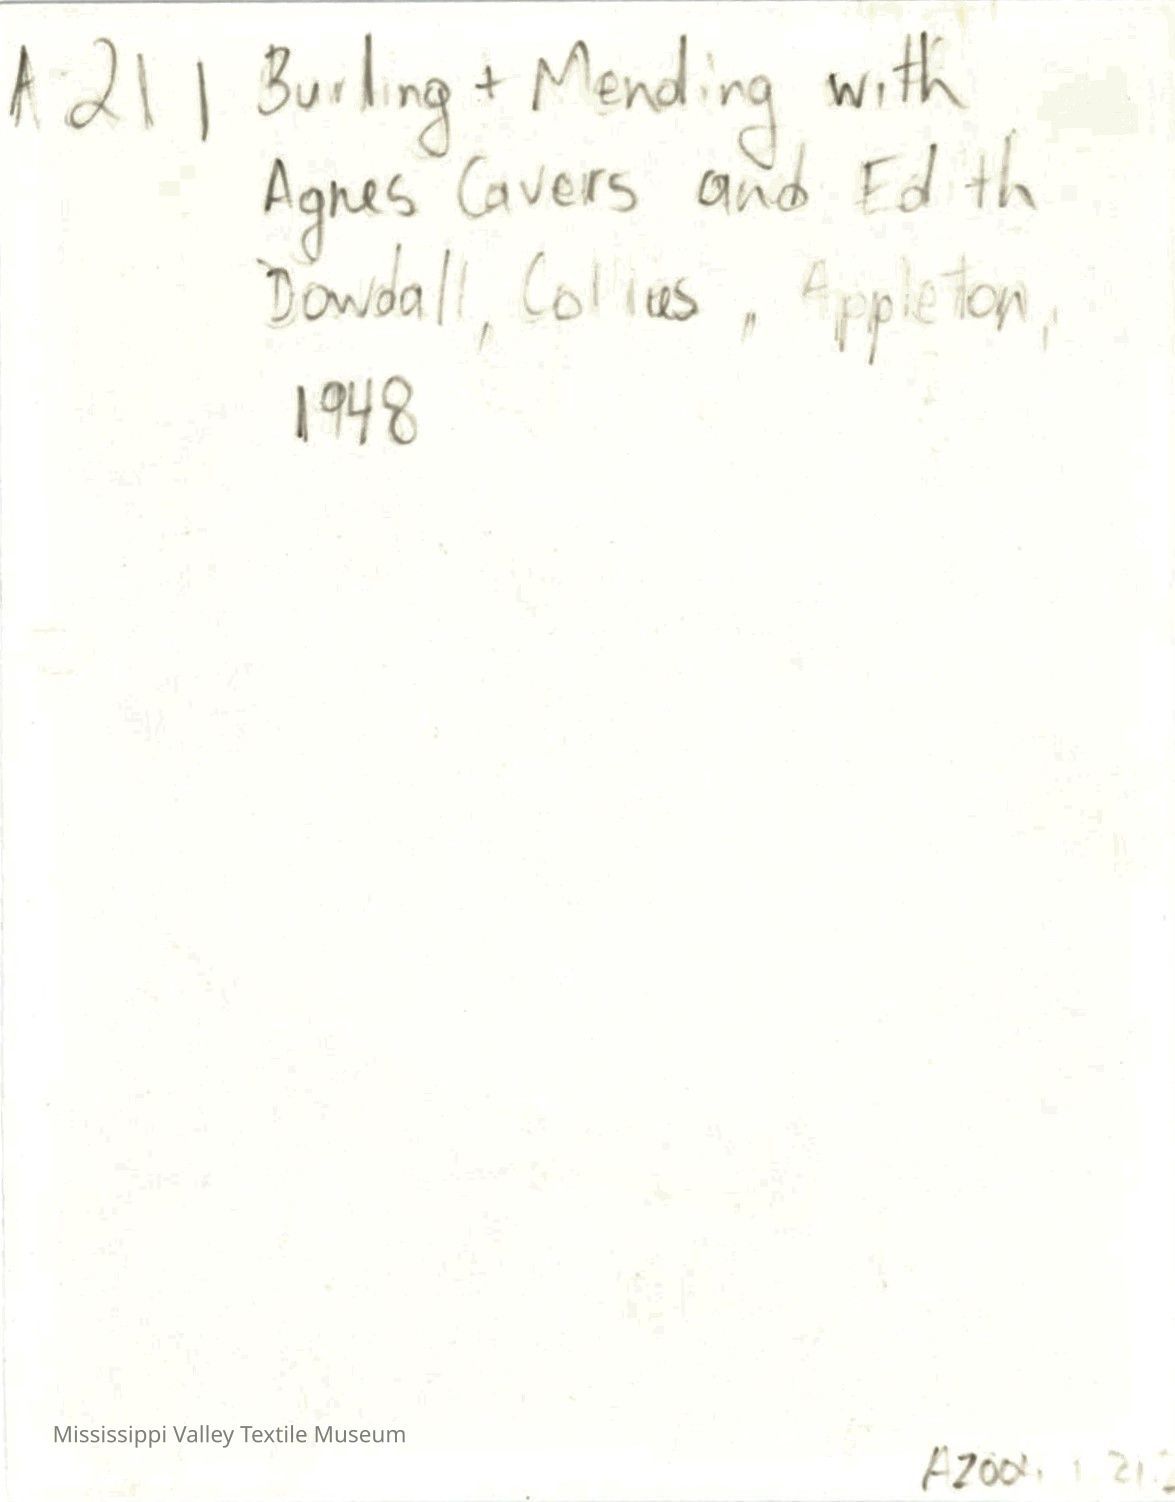 A 211 Burling + Mending with
Agnes Cavers and Edith
Dowdall, Collies, Appleton,
1948
Mississippi Valley Textile Museum